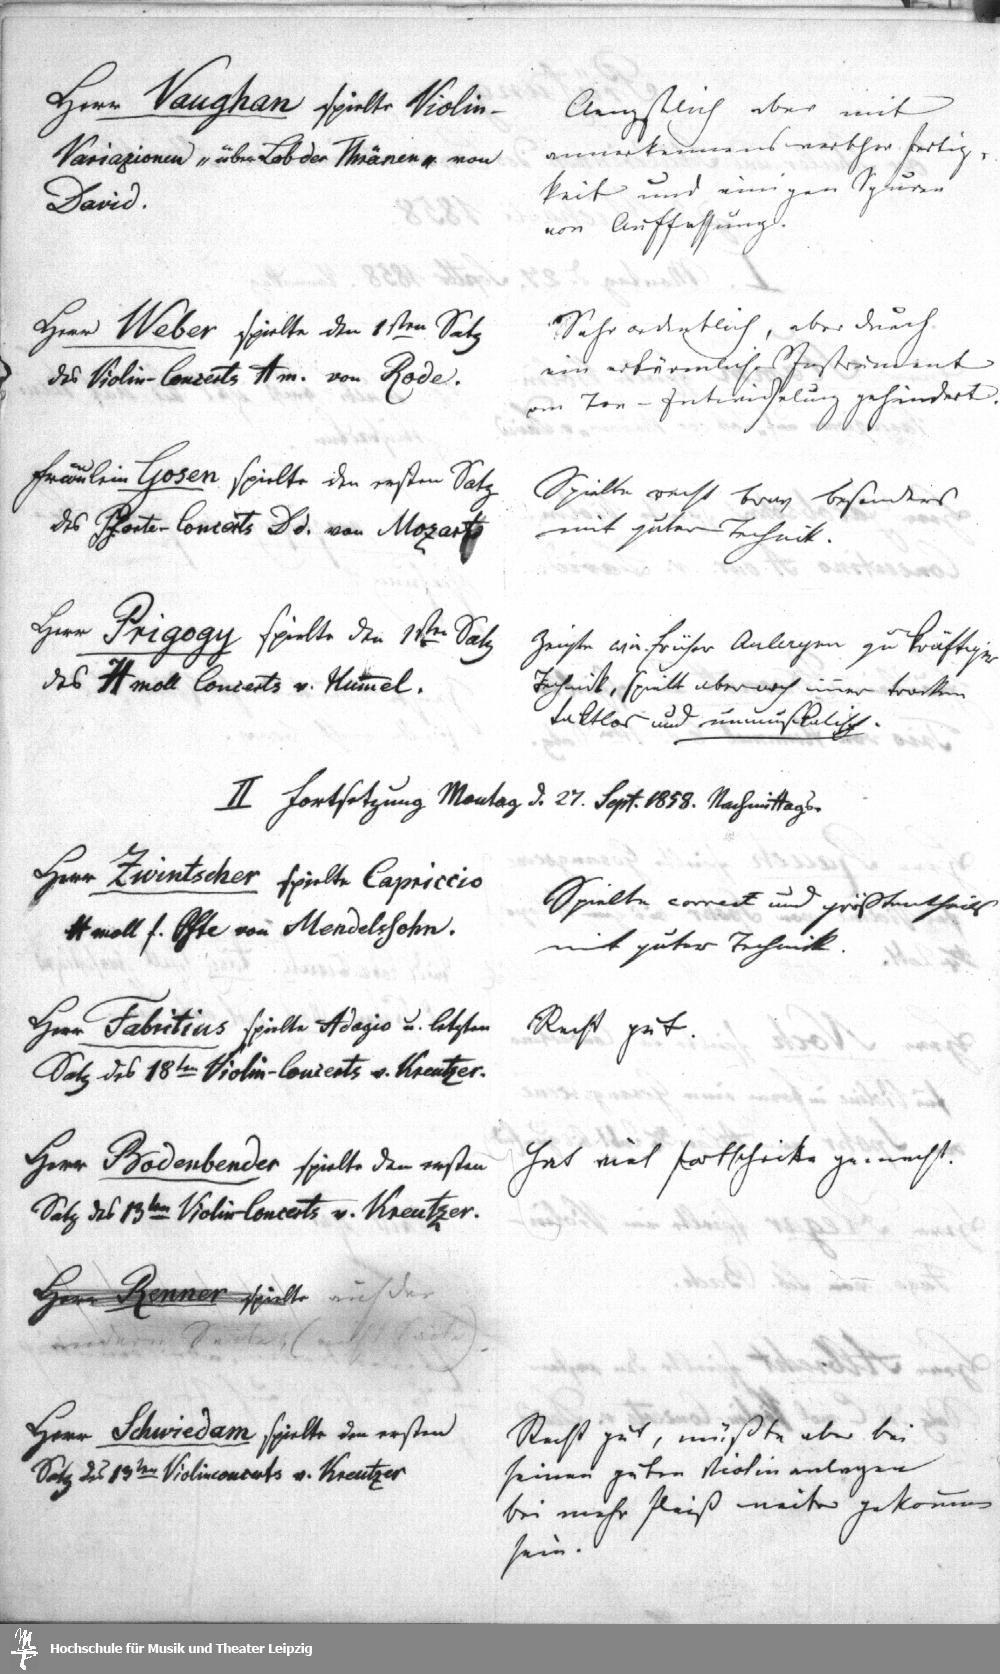 Herr Vaughan spielte Violin-
Variazionen „über Lob der Thränen“ von
David.
Aengstlich aber mit
anerkennenswerther Fertig-
keit und einigen Spuren
von Auffassung.
Herr Weber spielte den 1sten Satz
des Violin-Concerts Am. von Rode.
Sehr ordentlich, aber durch
ein erbärmliches Instrument
an Ton-Entwickelung gehindert.
Fräulein Gosen spielte den ersten Satz
des Pforte-Concerts Dd. von Mozart
Spielte recht brav besonders
mit guter Technik.
Herr Prigogy spielte den 1sten Satz
des H moll Concerts v. Hummel.
Zeigte wie früher Anlagen zu kräftiger
Technik, spielt aber noch immer trocken
taktlos und unmusikalisch.
II Fortsetzung Montag d. 27. Sept. 1858. Nachmittags.
Herr Zwintscher spielte Capriccio
H moll f. Pfte von Mendelssohn.
Spielte correct und größtentheils
mit guter Technik.
Herr Fabritius spielte Adagio u. letzten
Satz des 18ten Violin-Concerts v. Kreutzer.
Recht gut.
Herr Bodenbender spielte den ersten
Satz des 13ten Violin Concerts v. Kreutzer.
Hat viel Fortschritte gemacht.
Herr Renner spielte auf der
andern Seite (
Herr Schwiedam spielte den ersten
Satz des 13ten Violinconcerts v. Kreutzer
Recht gut, müßte aber bei
seinen guten Violinanlagen
bei mehr Fleiß weiter gekommen
sein.
Hochschule für Musik und Theater Leipzig